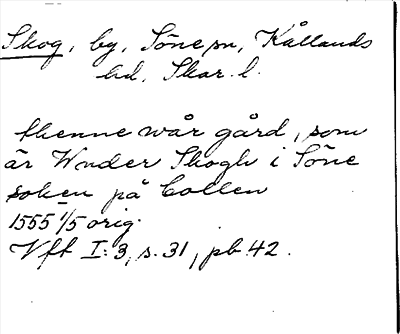 Skog, by, Söne sn, Kållands
hd, Skar. l.
thenne wår gård, som
är Wnder Skogh i Söne
soken på Collen
1555 1/5 orig.
Vft I:3, s. 31, pb 42.